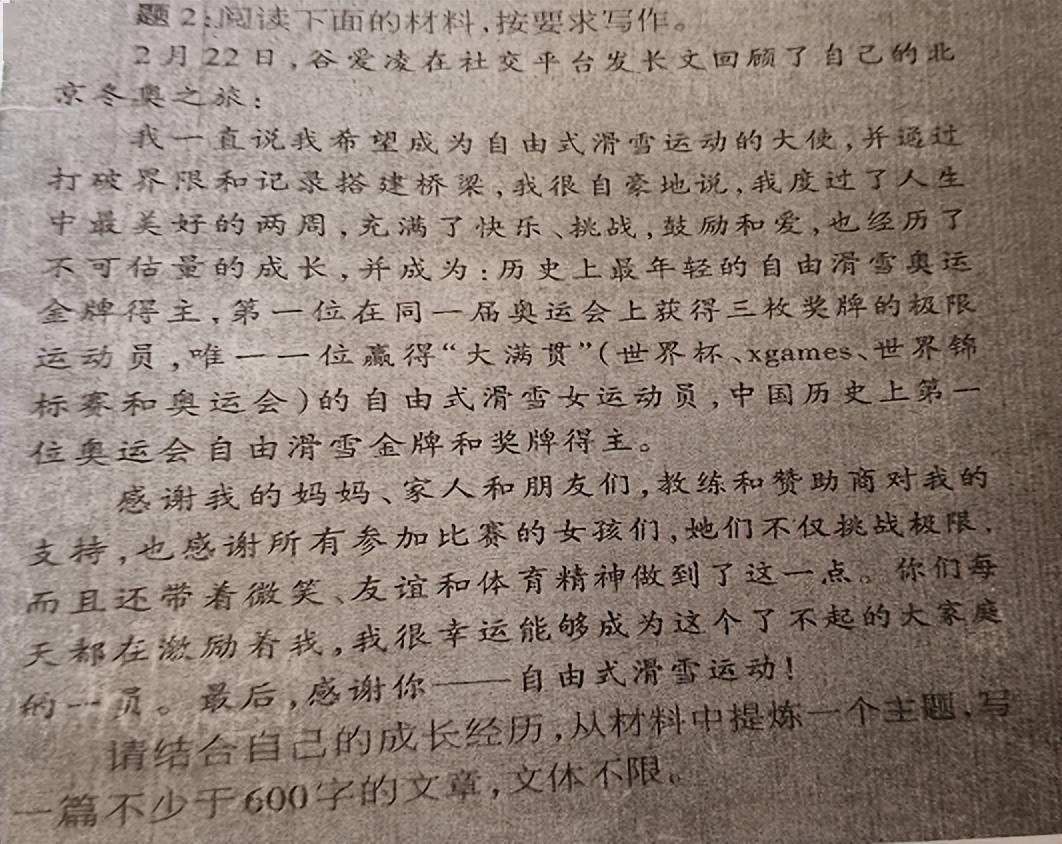 题2:阅读下面的材料,按要求写作。
2月22日,谷爱凌在社交平台发长文回顾了自己的北
京冬奥之旅:
我一直说我希望成为自由式滑雪运动的大使,并通过
打破界限和记录搭建桥梁,我很自豪地说,我度过了人生
中最美好的两周,充满了快乐、挑战,鼓励和爱,也经历了
不可估量的成长,并成为:历史上最年轻的自由滑雪奥运
金牌得主,第一位在同一届奥运会上获得三枚奖牌的极限
运动员,唯一一位赢得“大满贯”(世界杯、xgames、世界锦
标赛和奥运会)的自由式滑雪女运动员,中国历史上第一
位奥运会自由滑雪金牌和奖牌得主。
感谢我的妈妈、家人和朋友们,教练和赞助商对我的
支持,也感谢所有参加比赛的女孩们,她们不仅挑战极限,
而且还带着微笑、友谊和体育精神做到了这一点。你们每
天都在激励着我,我很幸运能够成为这个了不起的大家庭
的一员。最后,感谢你——自由式滑雪运动!
请结合自己的成长经历,从材料中提炼一个主题,写
一篇不少于600字的文章,文体不限。